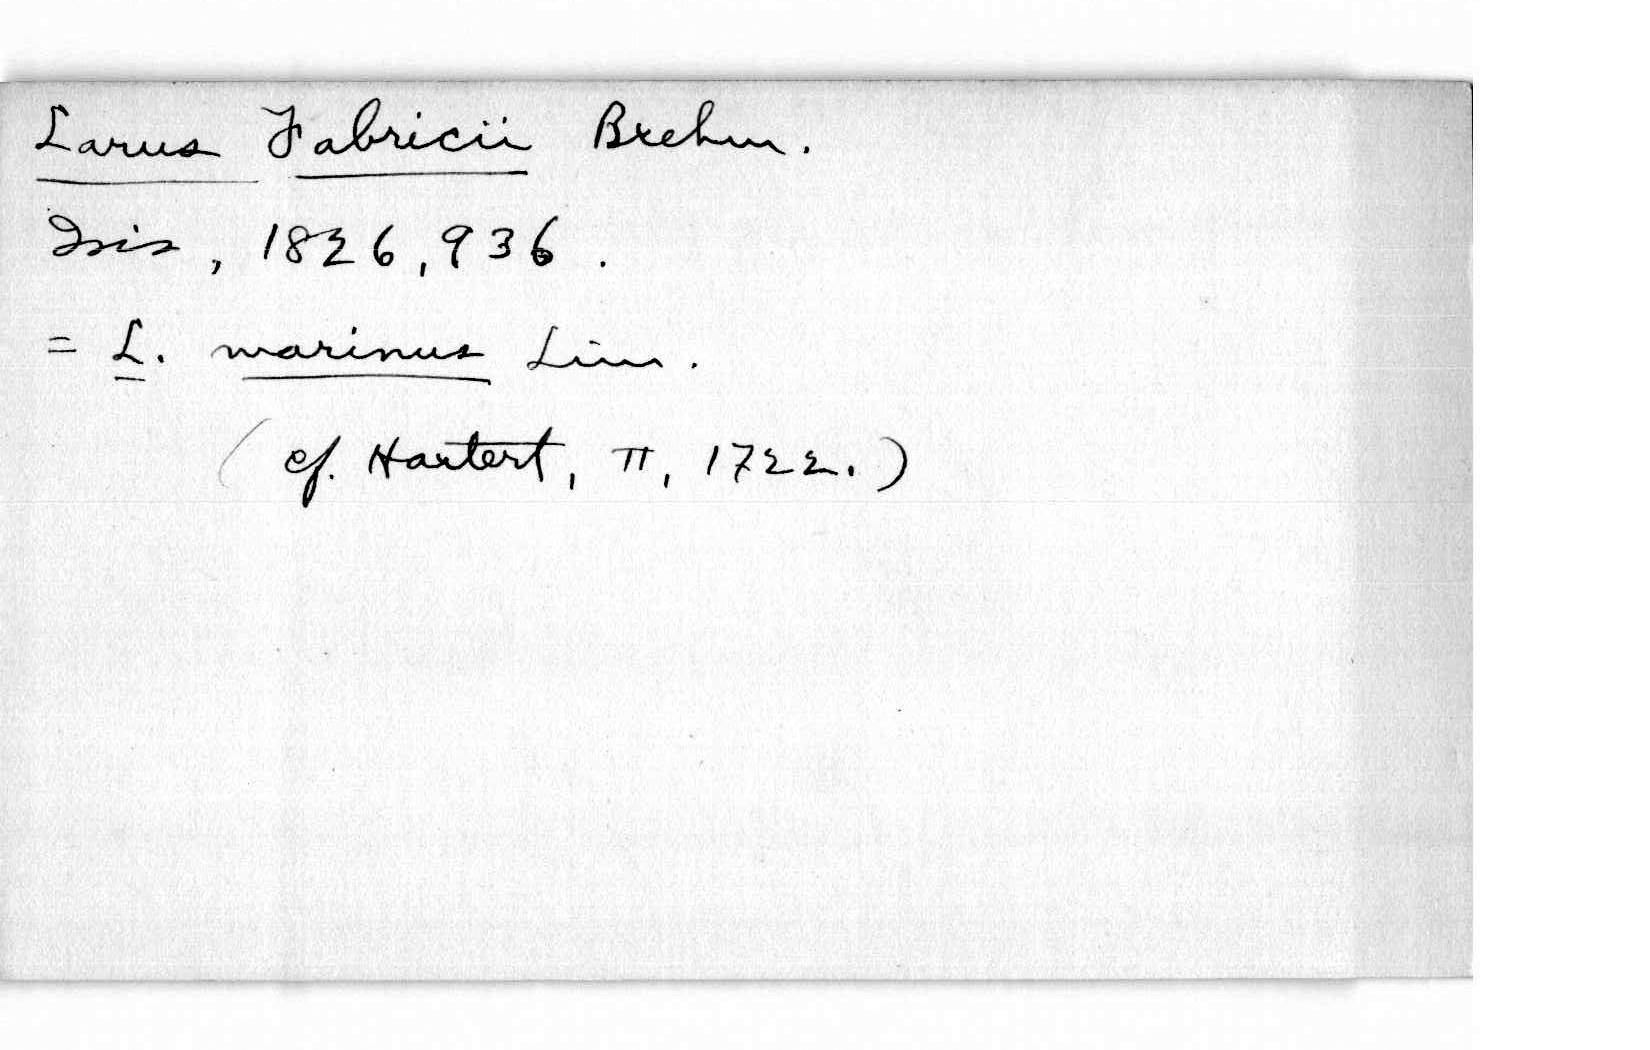 Larus Fabricii Brehm.
Isis, 1826, 936.
= L. marinus Linn.
(cf. Hartert, II, 1722.)